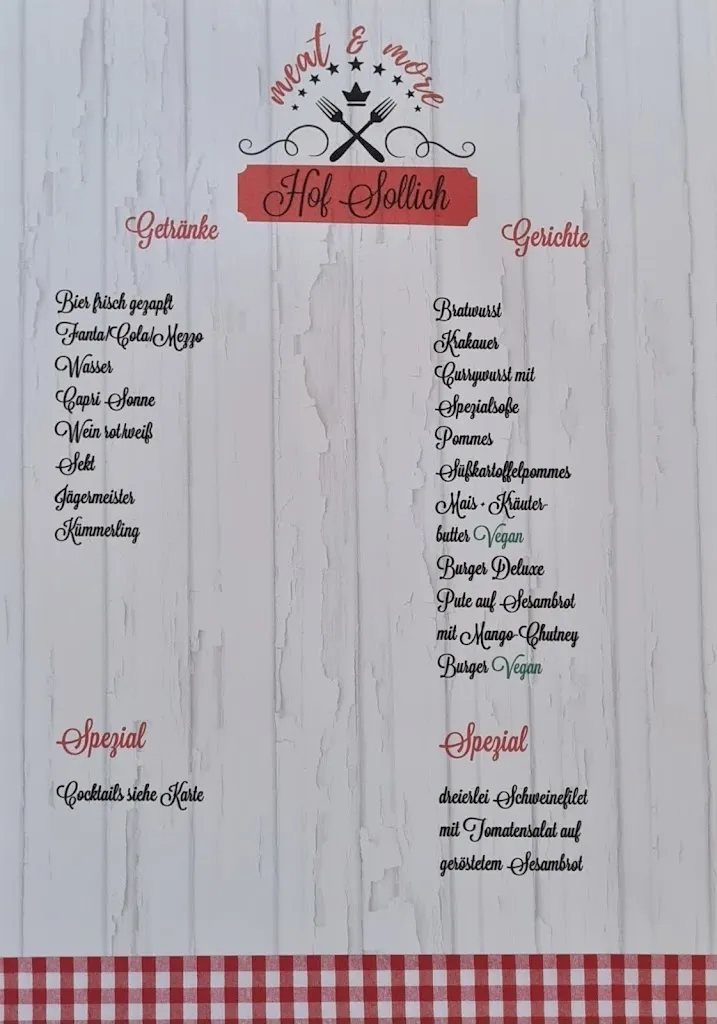 meat & more
Hof Sollich
Getränke
Bier frisch gezapft
Fanta/Cola/Mezzo
Wasser
Capri-Sonne
Wein rot/weiß
Sekt
Jägermeister
Kümmerling
Spezial
Cocktails siehe Karte
Gerichte
Bratwurst
Krakauer
Currywurst mit
Spezialsoße
Pommes
Süßkartoffelpommes
Mais + Kräuter-
butter Vegan
Burger Deluxe
Pute auf Sesambrot
mit Mango-Chutney
Burger Vegan
Spezial
dreierlei Schweinefilet
mit Tomatensalat auf
geröstetem Sesambrot